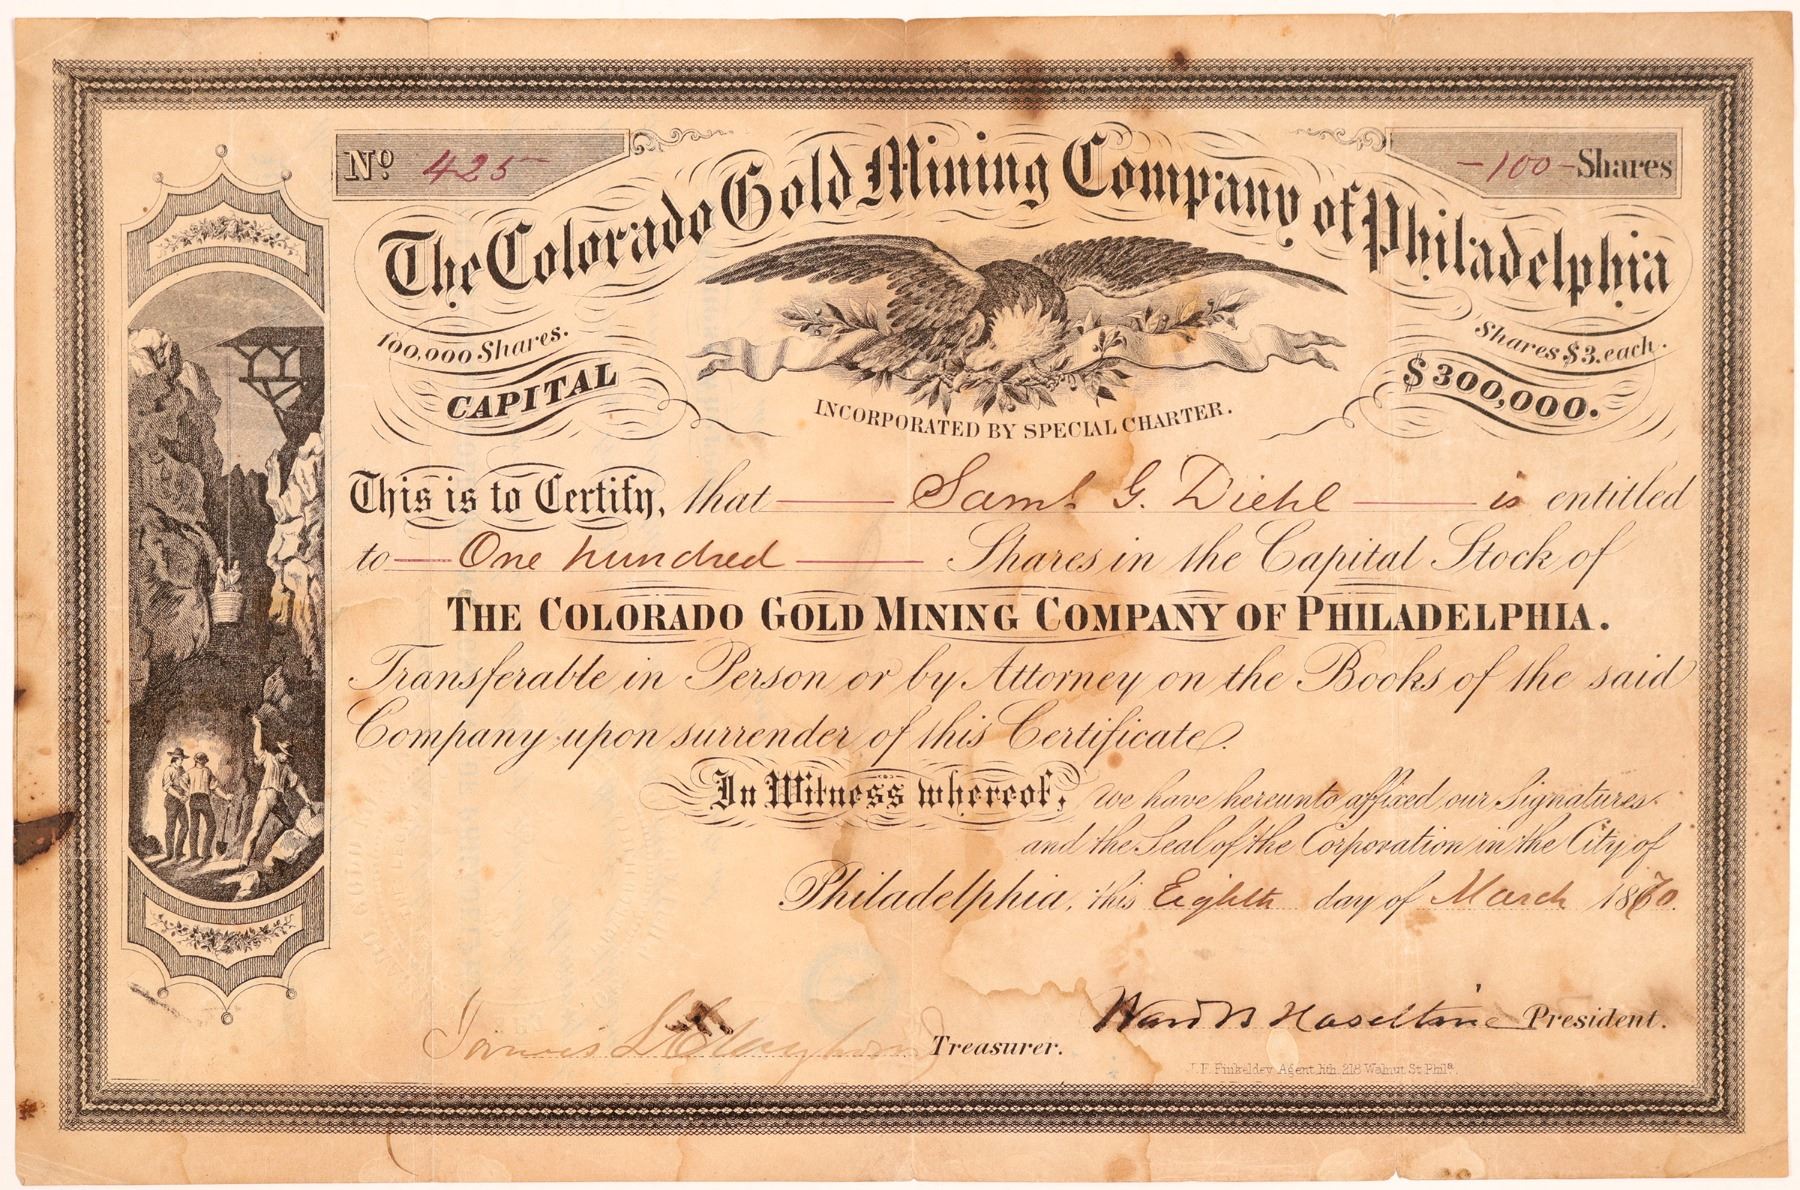 No 425
-100- Shares
The Colorado Gold Mining Company of Philadelphia
100,000 Shares.
Shares $3. each.
CAPITAL
$300,000.
INCORPORATED BY SPECIAL CHARTER.
This is to Certify, that Saml G. Diehl is entitled
to One hundred Shares in the Capital Stock of
THE COLORADO GOLD MINING COMPANY OF PHILADELPHIA.
Transferable in Person or by Attorney on the Books of the said
Company upon surrender of this Certificate.
In Witness whereof, we have hereunto affixed our Signatures
and the Seal of the Corporation in the City of
Philadelphia, this Eighth day of March 1870.
Ward B Haseltine President.
Treasurer.
J. F. Finkeldey Agent, lith. 218 Walnut St. Phila.